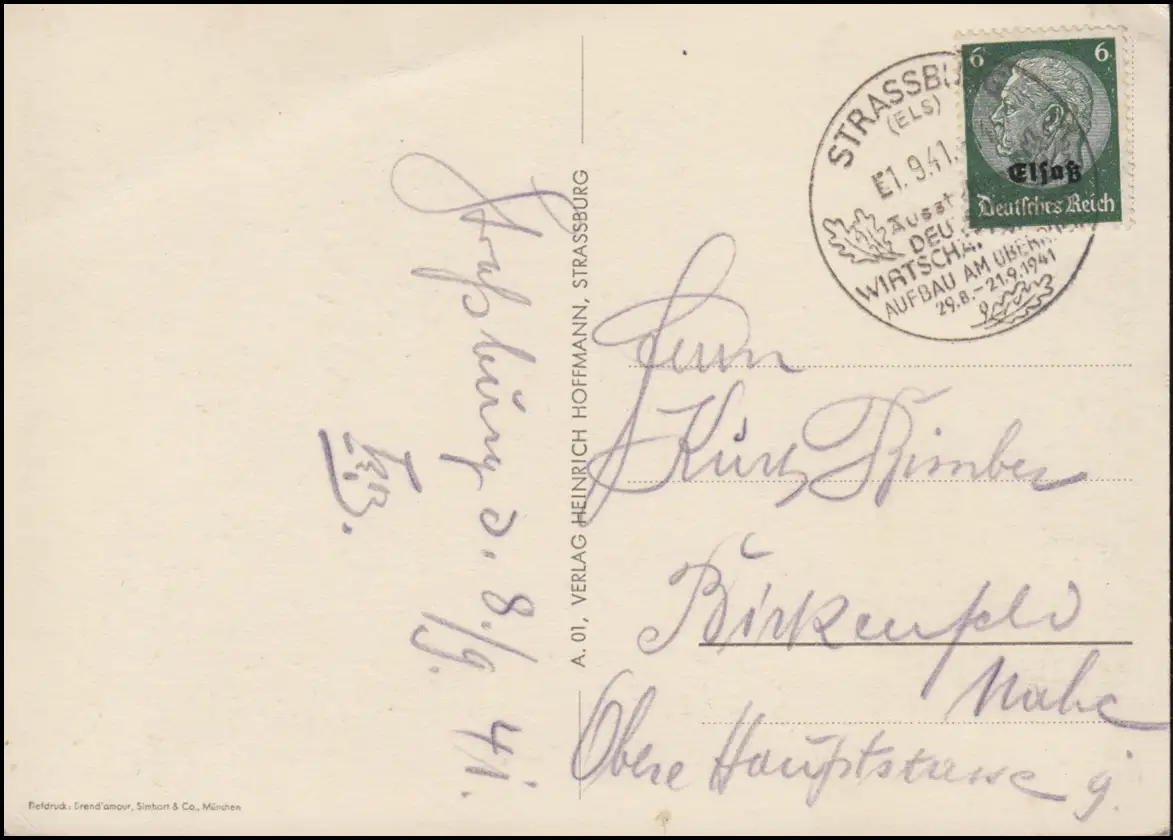 Straßburg d. 8./9. 41.
A. 01, VERLAG HEINRICH HOFFMANN, STRASSBURG
Tiefdruck: Brend'amour, Simhart & Co., München
STRASSBU
(ELS)
E1.9.41.
Ausst
DEU
WIRTSCHA
AUFBAU AM OBERRH
29.8.–21.9.1941
6 6
Elsaß
Deutsches Reich
Herrn
Kurt Kimber
Birkenfeld
Nahe
Obere Hauptstrasse 9.